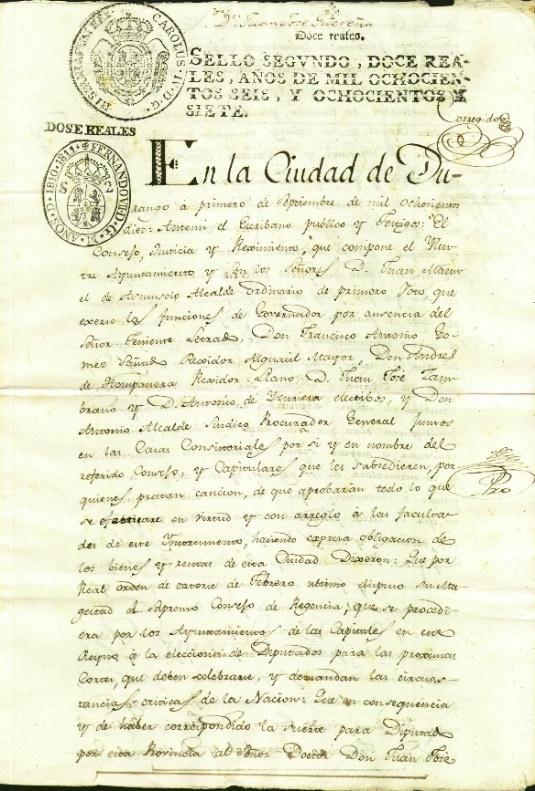 Dn Juan José Guereña
Doce reales.
SELLO SEGVNDO, DOCE REA-
LES, AÑOS DE MIL OCHOCIEN-
TOS SEIS, Y OCHOCIENTOS Y
SIETE.
CAROLUS IV D.G.
HISPANIAR
Corregido
DOSE REALES
FERNANDO VII D.G.
AÑOS D 1810.1811
S 2
En la Ciudad de Du-
rango â primero de Septiembre de mil ochocientos
diez: Antemi el Escribano publico y Testigos: El
Consejo, Justicia y Reximiento, que compone el Ilus-
tre Ayuntamiento y los Señores D. Juan Manu-
el de Asunsolo Alcalde ordinario de primero Voto, que
exerce las funciones de Governador por ausencia del
Señor Teniente Letrad, Don Francisco Antonio Go-
mes Rexidor Alguacil Mayor, Don Andres
de Rexidor Llano, D. Juan José Zam-
brano y D. Antonio de electivos, y Don
Antonio Alcalde Sindico Procurador General Juntos
en las Casas Consistoriales por si y en nombre del
referido Consejo, y Capitulares que les subsedieren, por
quienes prestan caucion, de que aprobarán todo lo que
se efectuare en virtud y con arreglo â las faculta-
des de este Ynstrumento, haciendo expresa obligacion de
los bienes y rentas de esta Ciudad Dixeron: Que por
Real orden de catorce de Febrero ultimo dispuso su Ma-
gestad el Supremo Consejo de Regencia, que se procedi-
era por los Ayuntamientos de las Capitales en este
Reyno â la eleccion de Diputados para las proximas
Cortes, que deben celebrarse, y demandan las circuns-
tancias criticas de la Nacion: Que en consequencia
y de haber correspondido la suerte para Diputad
por esta Provincia al Señor Doctor Don Juan José